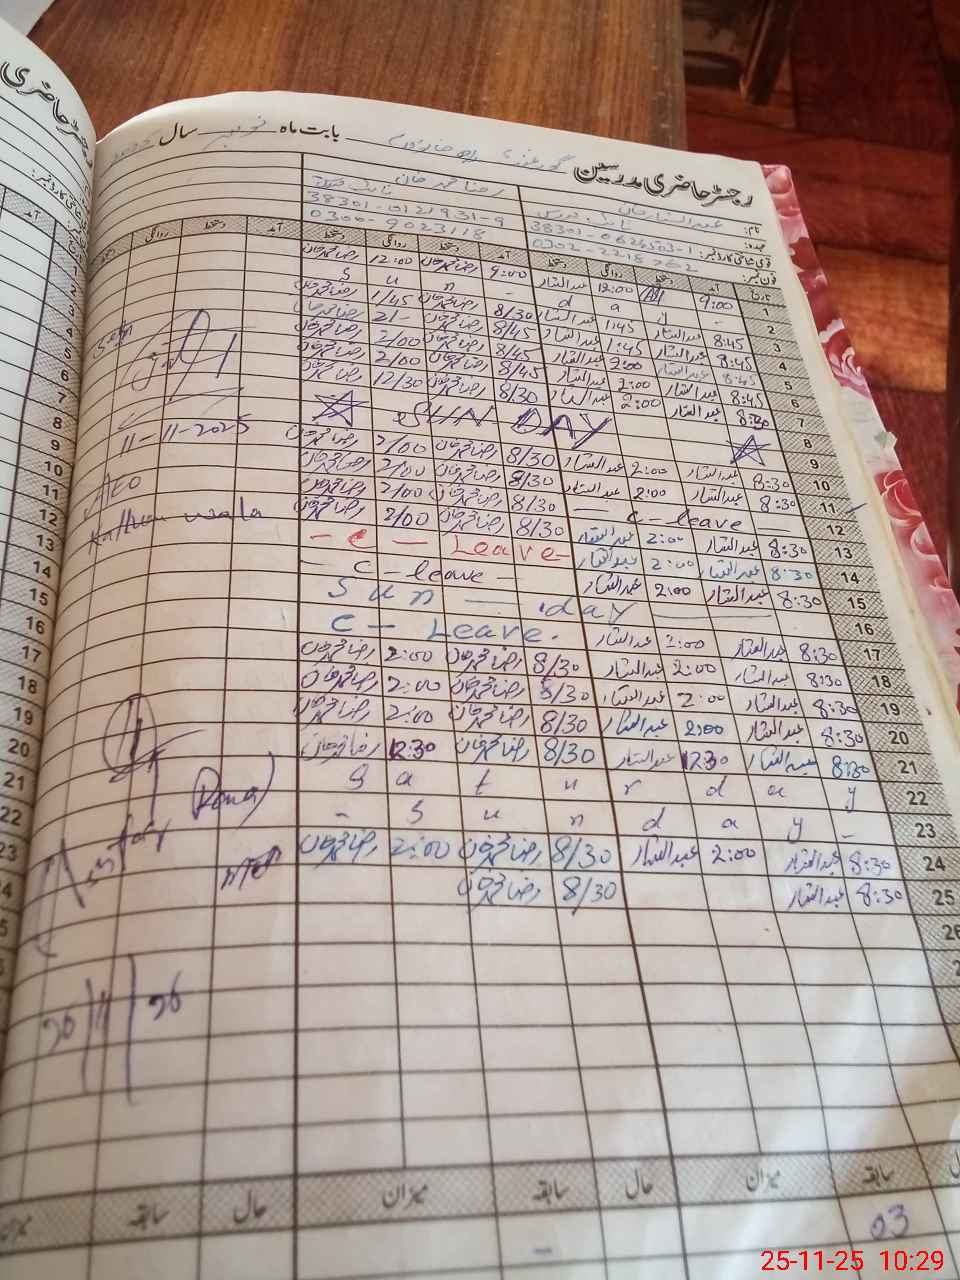 رجسٹر حاضری مدرسین بابت ماہ نومبر سال
نام: عبدالستار خان رضا محمد خان
عہدہ: نائب قاصد
قومی شناختی کارڈ نمبر: 38301-0121931-9
فون نمبر: 0302-2218262 0300-9023118
تاریخ آمد دستخط روانگی دستخط آمد دستخط روانگی دستخط آمد دستخط روانگی دستخط
1 9:00 12:00 عبدالستار 9:00 رضا محمد خان 12:00 رضا محمد خان
2 - S u n d a y -
3 8:45 عبدالستار 1:45 عبدالستار 8/30 رضا محمد خان 1/45 رضا محمد خان
4 8:45 عبدالستار 1:45 عبدالستار 8/45 رضا محمد خان 2/- رضا محمد خان
5 8:45 عبدالستار 2:00 عبدالستار 8/45 رضا محمد خان 2/00 رضا محمد خان
6 8:45 عبدالستار 2:00 عبدالستار 8/45 رضا محمد خان 2/00 رضا محمد خان
7 8:30 عبدالستار 2:00 عبدالستار 8/30 رضا محمد خان 12/30 رضا محمد خان
8
9 SUNDAY
10 8:30 عبدالستار 2:00 عبدالستار 8/30 رضا محمد خان 2/00 رضا محمد خان
11 8:30 عبدالستار 2:00 عبدالستار 8/30 رضا محمد خان 2/00 رضا محمد خان
12 — C-leave — 8/30 رضا محمد خان 2/00 رضا محمد خان
13 8:30 عبدالستار 2:00 عبدالستار 8/30 رضا محمد خان 2/00 رضا محمد خان
14 8:30 عبدالستار 2:00 عبدالستار - C - Leave -
15 8:30 عبدالستار 2:00 عبدالستار - C-leave -
16 Sun — day
17 8:30 عبدالستار 2:00 عبدالستار C - Leave.
18 8:30 عبدالستار 2:00 عبدالستار 8/30 رضا محمد خان 2:00 رضا محمد خان
19 8:30 عبدالستار 2:00 عبدالستار 8/30 رضا محمد خان 2:00 رضا محمد خان
20 8:30 عبدالستار 2:00 عبدالستار 8/30 رضا محمد خان 2:00 رضا محمد خان
21 8:30 عبدالستار 12:30 عبدالستار 8/30 رضا محمد خان 12:30 رضا محمد خان
22 S a t u r d a y
23 - S u n d a y -
24 8:30 عبدالستار 2:00 عبدالستار 8/30 رضا محمد خان 2:00 رضا محمد خان
25 8:30 عبدالستار 8/30 رضا محمد خان
26
11-11-2025
AEO
wala
سابقہ میزان حال سابقہ میزان حال سابقہ میزان
03
25-11-25 10:29